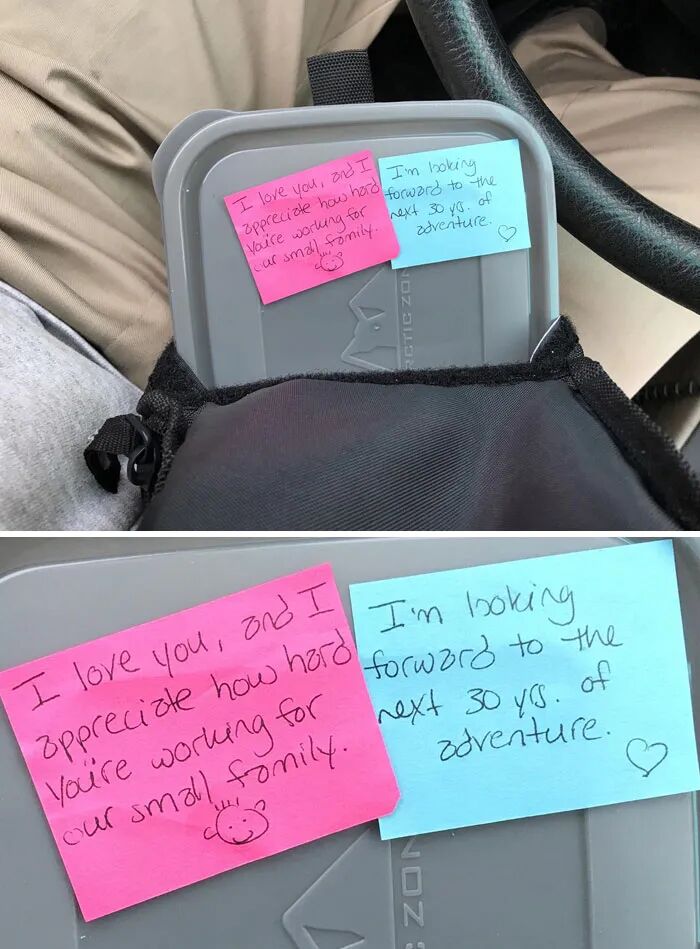 I love you, and I
appreciate how hard
you're working for
our small family.
I'm looking
forward to the
next 30 yrs. of
adventure.
ARCTIC ZON
I love you, and I
appreciate how hard
you're working for
our small family.
I'm looking
forward to the
next 30 yrs. of
adventure.
C ZON